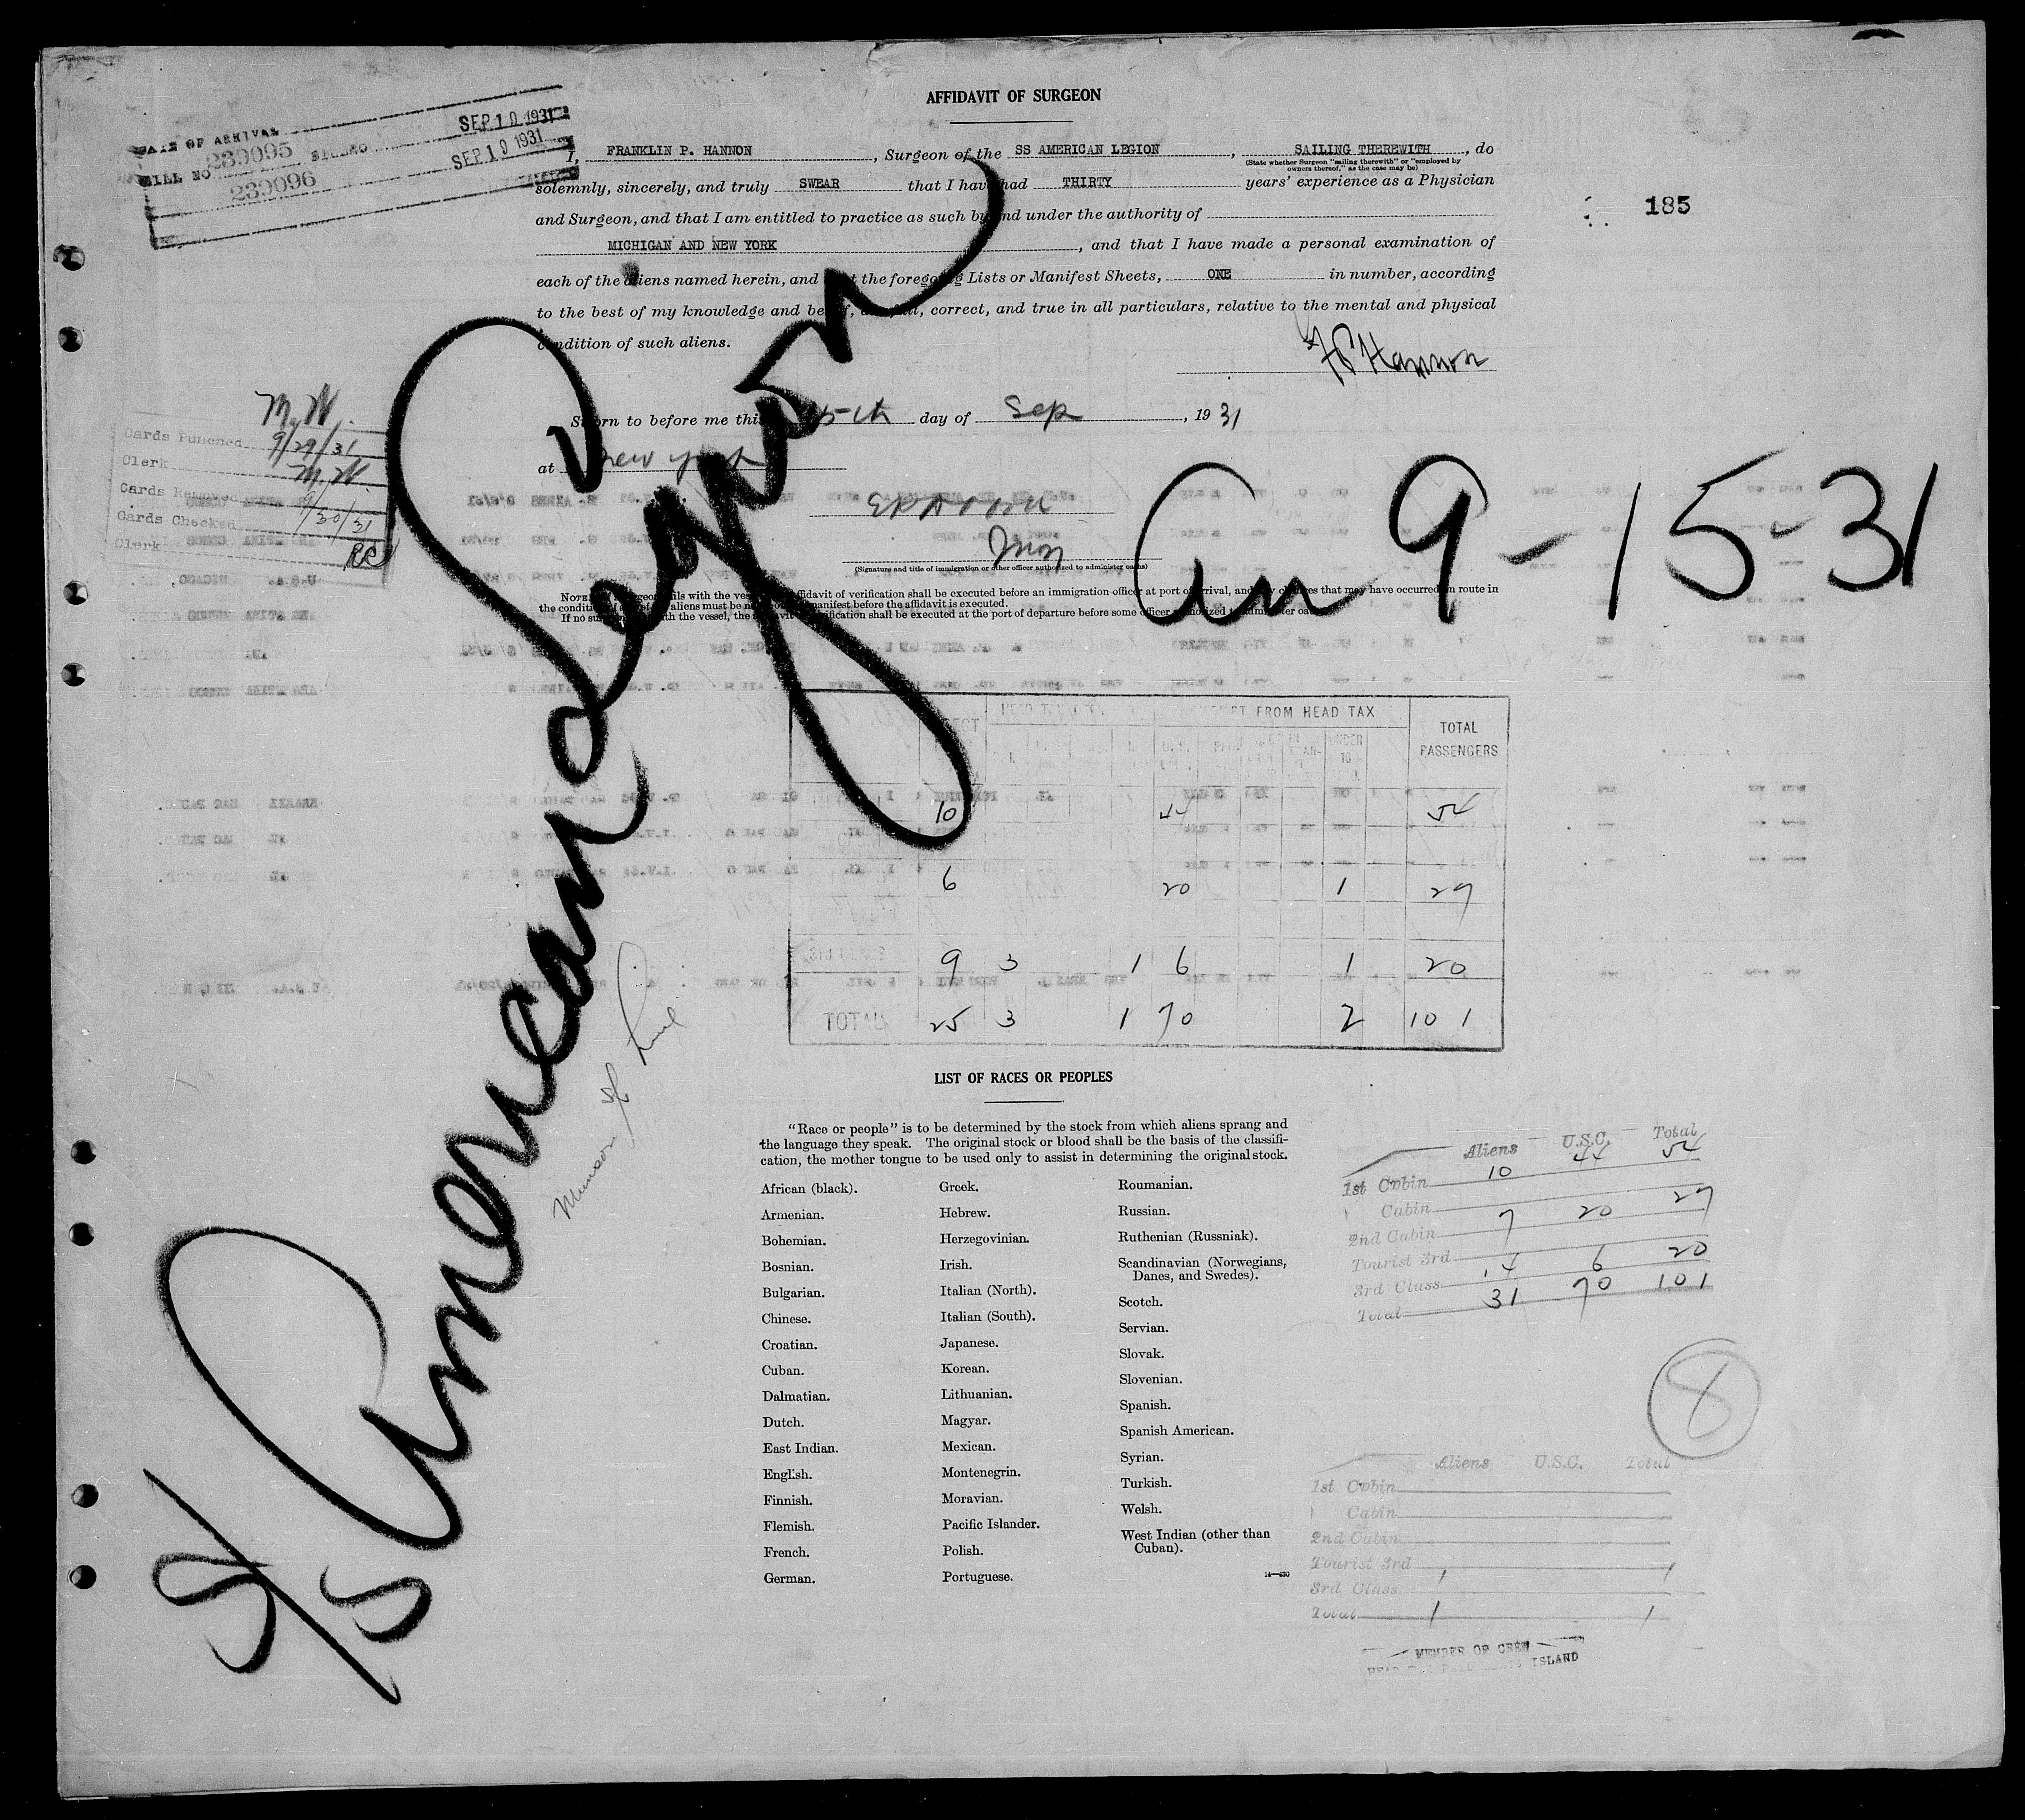 AFFIDAVIT OF SURGEON
DATE OF ARRIVAL SEP 10 1931
239095 SEP 10 1931
BILL NO
239096
185
I, FRANKLIN P. HANNON, Surgeon of the SS AMERICAN LEGION, SAILING THEREWITH, do
(State whether Surgeon "sailing therewith" or "employed by
owners thereof," as the case may be)
solemnly, sincerely, and truly SWEAR that I have had THIRTY years' experience as a Physician
and Surgeon, and that I am entitled to practice as such by and under the authority of
MICHIGAN AND NEW YORK, and that I have made a personal examination of
each of the aliens named herein, and the foregoing Lists or Manifest Sheets, ONE in number, according
to the best of my knowledge and belief, correct, and true in all particulars, relative to the mental and physical
condition of such aliens.
F P Hannon
Sworn to before me this 15th day of Sep, 1931
at New York
(Signature and title of immigration or other officer authorized to administer oaths)
M. W.
Cards Punched 9/29/31
Clerk M. W.
Cards Removed 9/30/31
Cards Checked
Clerk RC
S/S American Legion
Munson SS Line
9-15-31
NOTE. surgeon sails with the vessel affidavit of verification shall be executed before an immigration officer at port of arrival, and any changes that may have occurred en route in
the condition of aliens must be manifest before the affidavit is executed.
If no surgeon with the vessel, the affidavit verification shall be executed at the port of departure before some officer authorized to administer oaths.
EXEMPT FROM HEAD TAX TOTAL PASSENGERS
10 44 54
6 20 1 27
9 3 1 6 1 20
TOTAL 25 3 1 70 2 101
LIST OF RACES OR PEOPLES
"Race or people" is to be determined by the stock from which aliens sprang and
the language they speak. The original stock or blood shall be the basis of the classifi-
cation, the mother tongue to be used only to assist in determining the original stock.
African (black).
Armenian.
Bohemian.
Bosnian.
Bulgarian.
Chinese.
Croatian.
Cuban.
Dalmatian.
Dutch.
East Indian.
English.
Finnish.
Flemish.
French.
German.
Greek.
Hebrew.
Herzegovinian.
Irish.
Italian (North).
Italian (South).
Japanese.
Korean.
Lithuanian.
Magyar.
Mexican.
Montenegrin.
Moravian.
Pacific Islander.
Polish.
Portuguese.
Roumanian.
Russian.
Ruthenian (Russniak).
Scandinavian (Norwegians,
Danes, and Swedes).
Scotch.
Servian.
Slovak.
Slovenian.
Spanish.
Spanish American.
Syrian.
Turkish.
Welsh.
West Indian (other than
Cuban).
14—430
Aliens U.S.C. Total
1st Cabin 10 44 54
Cabin
2nd Cabin 7 20 27
Tourist 3rd
3rd Class 14 6 20
Total 31 70 101
8
Aliens U.S.C. Total
1st Cabin
Cabin
2nd Cabin
Tourist 3rd
3rd Class 1 1
Total 1 1
MEMBER OF CREW
ISLAND